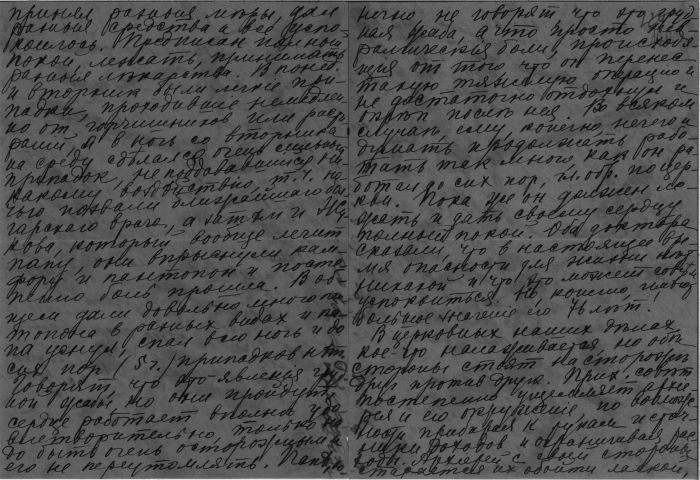 принял разныя меры, дал
разныя средства и все успо-
коилось. Предписан полный
покой, лежать, принимать
разныя лекарства. В понед.
и вторник были легкие при-
падки, проходившие немедлен-
но от горчишников или
а в ночь со вторника
на среду сделался очень сильный
припадок, не поддававшийся ни-
какому воздействию, т.ч. но-
чью позвали ближайшаго
врача, а затем и
кова, который вообще лечит
папу, они впрыснули кам-
фору и пантопон и посте-
пенно боль прошла. В об-
щем дали довольно много па-
топона в разных видах и па-
па уснул, спал всю ночь и до
сих пор (5 ч.) припадков нет.
Говорят что это явления груд-
ной жабы но они пройдут,
сердце работает вполне удо-
влетворительно, только на-
до быть очень осторожным и
его не переутомлять. Папе,
нечно не говорят что это груд-
ная жаба, а что просто нев-
ралгическия боли, происходя-
щия от того что он перенес
такую тяжелую операцию и
не достаточно отдохнул и
после нея. Во всяком
случае, ему, конечно, нечего и
думать продолжать рабо-
тать так много, как он ра-
ботал до сих пор, гл. обр. по цер-
кви. Пока же он должен ле-
жать и дать своему сердцу
полный покой. Оба доктора
сказали, что в настоящее вре-
мя опасности для жизни нет
никакой и что это может совсем
успокоиться. Но, конечно,
большое значение его 76 лет.
В церковных наших делах
кое-что налаживается, но обе
стороны стоят настороже
друг против друга. Прих. совет
постепенно ущемляет
и его окружение по
прибирая к рукам и
доходов и ограничивая рас-
ходы. Архиерей с своей стороны
старается их обойти лаской,